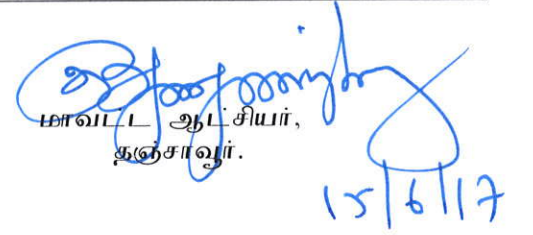 மாவட்ட ஆட்சியர்,
தஞ்சாவூர்.
15/6/17